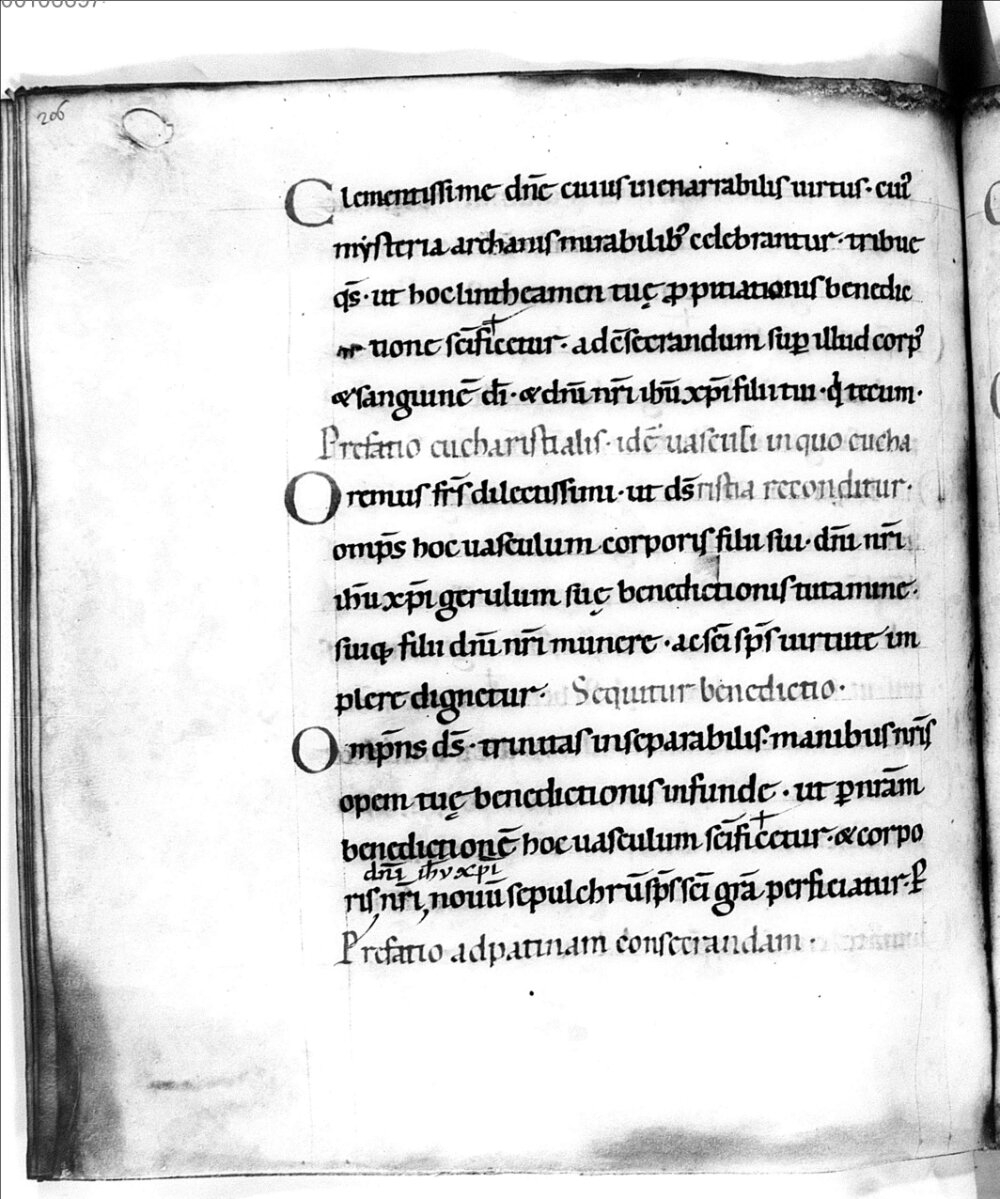 206
Clementissime dn̄e cuius inenarrabilis uirtus· cui᾽
mẏsteria archanis mirabilib᾽ celebrantur· tribue
qs̄· ut hoc lintheamen tuę ꝓpitiationis benedic
tione sc̄ific✝etur· ad c̄secrandum suꝑ illud corp᾽
& sanguinē dī· & dn̄i nr̄i ih̄u xp̄i filii tui· q̇ tecum·
Prefatio eucharistialis· idē uasculi in quo eucha
Oremus fr̄s dilectissimi· ut ds̄ ristia reconditur·
omp̄s hoc uasculum corporis filii sui· dn̄i nr̄i
ih̄u xp̄i gerulum suę benedictionis tutamine·
suiq; filii dn̄i nr̄i munere· ac sc̄i sp̄s uirtute im
plere dignetur· Sequitur benedictio·
Omp̄ns ds̄· trinitas inseparabilis· manibus nr̄is
opem tuę benedictionis infunde· ut ꝑ nr̄am
benedictionē hoc uasculum sc̄ific✝etur· & corpo
dn̄i ih̄v xp̄i
ris, nr̄i, nouū sepulchrū sp̄s sc̄i gr̄a perficiatur· ꝑ
Prefatio ad patinam consecrandam·